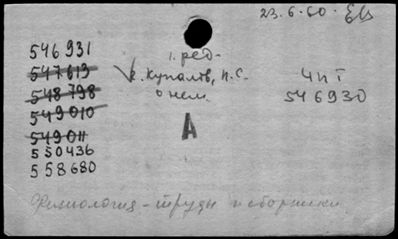 23.6.60.
546931
547613
548798
549010
549011
550436
558680
1. ред.
Купалов, П.С.
о нем.
А
ЧиТ
546930
Физиология - труды и сборники